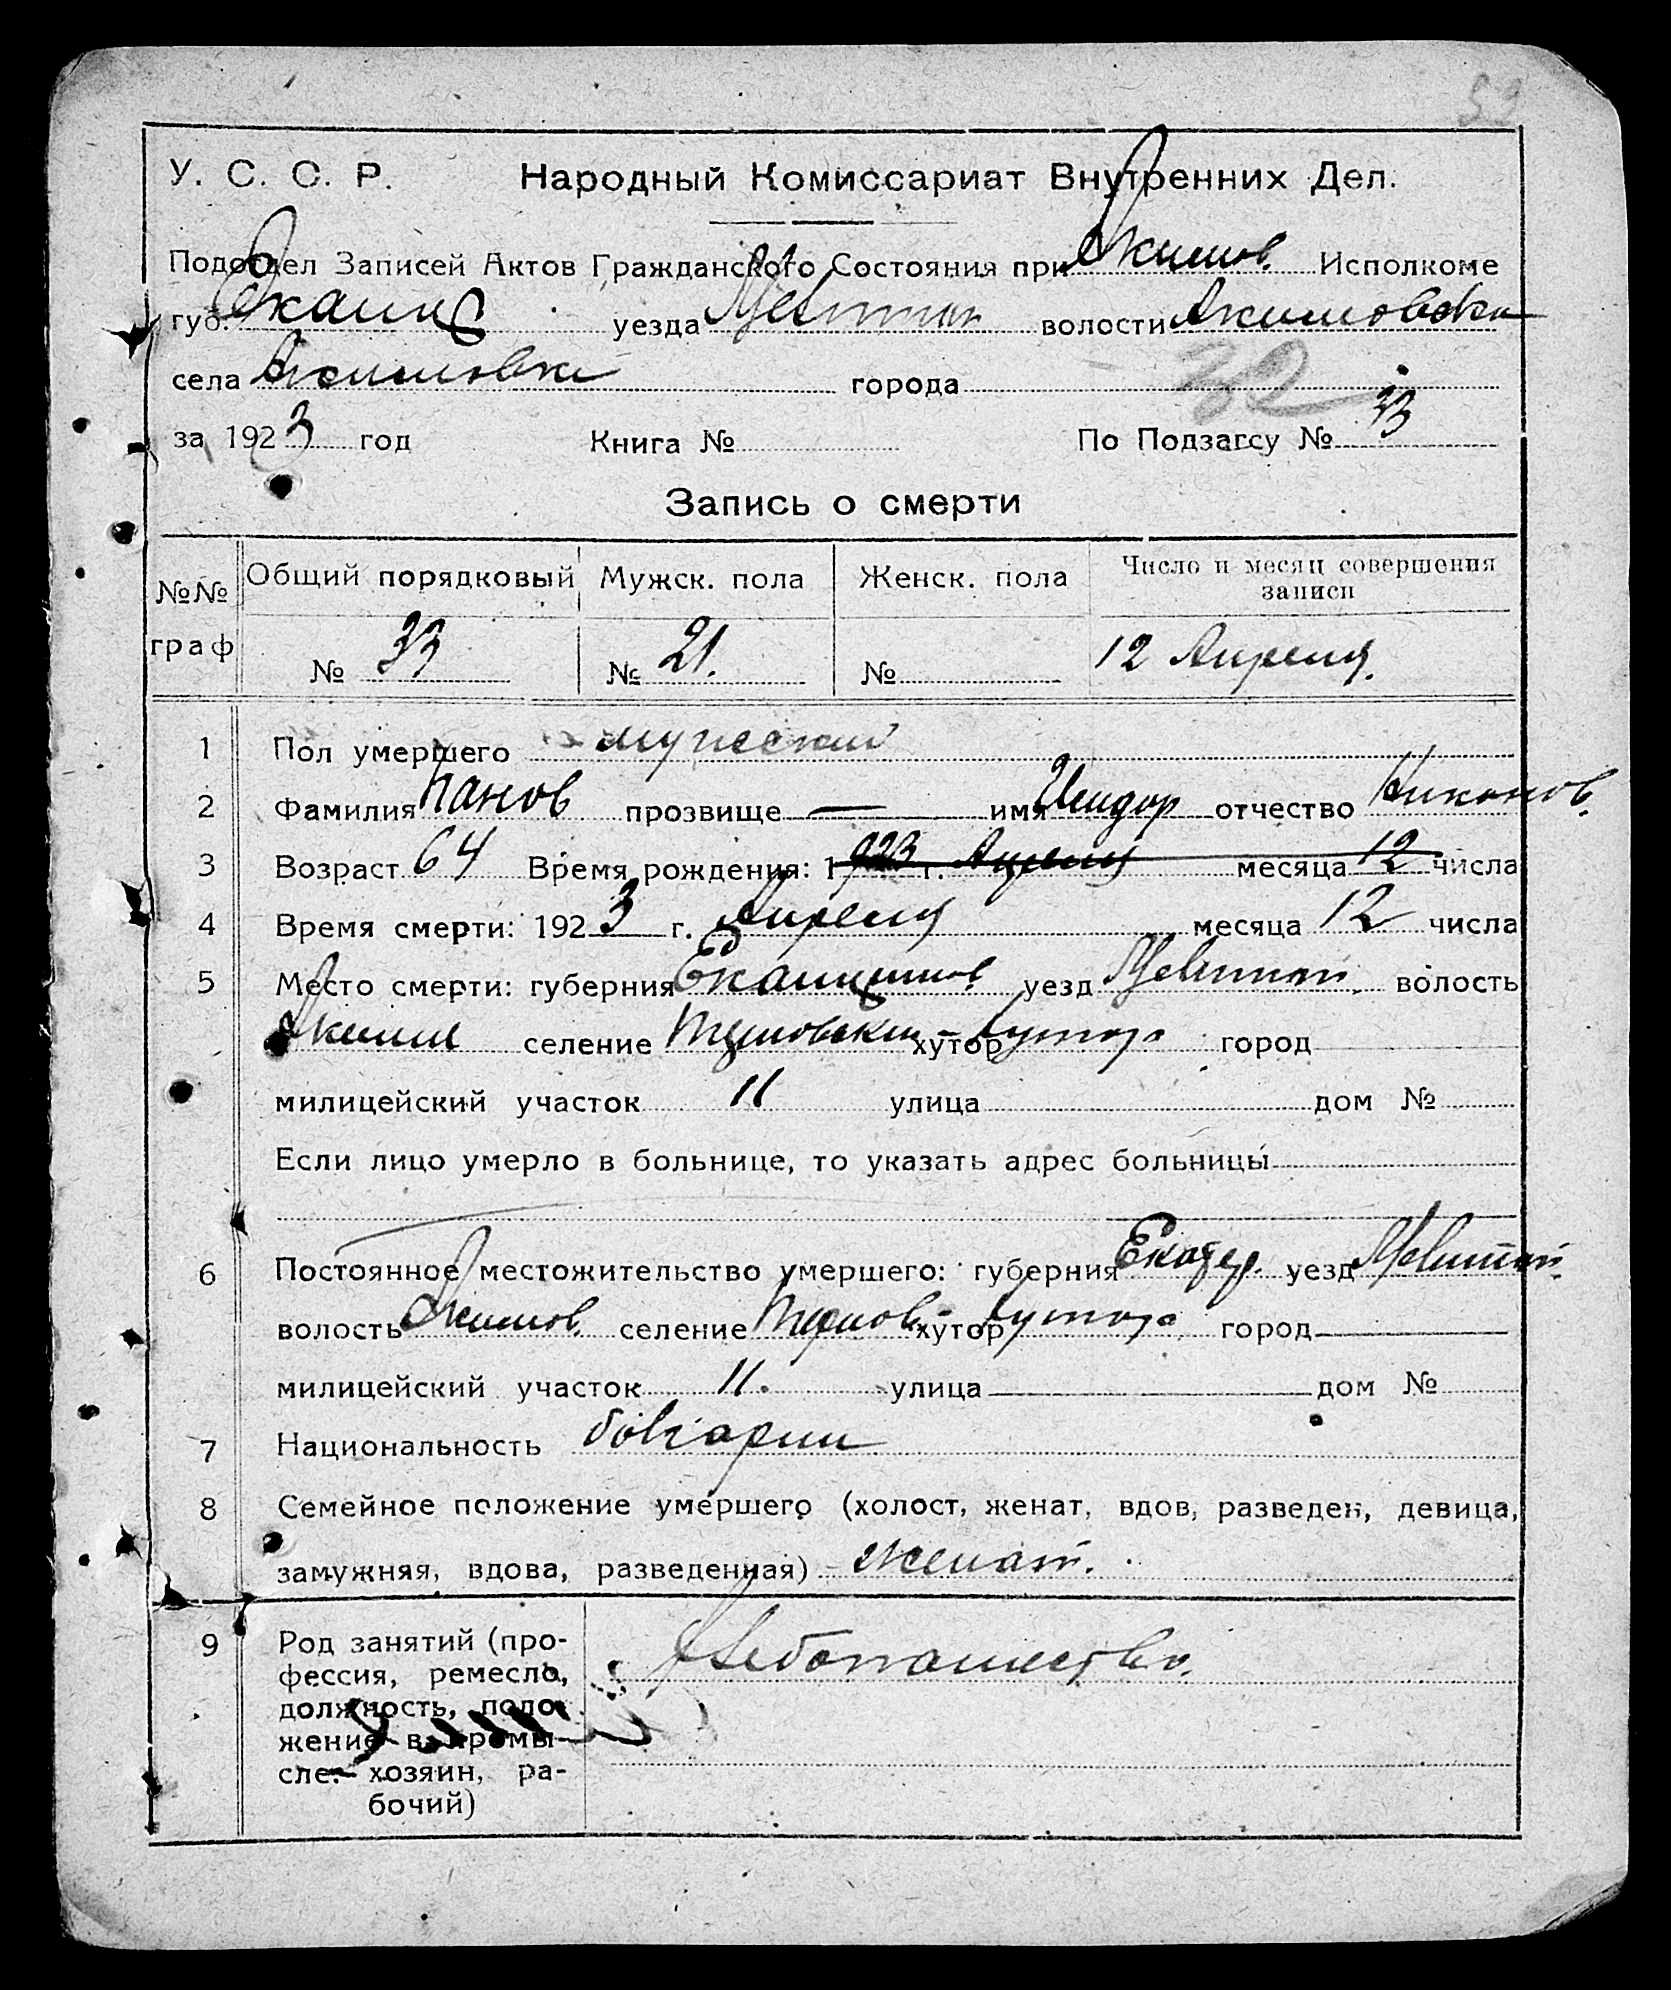 52
У. С. С. Р. Народный Комиссариат Внутренних Дел.
Подотдел Записей Актов Гражданского Состояния при Акимов. Исполкоме
губ. уезда Мелитоп волости Акимовска
села Акимовки города 32
за 1923 год Книга № По Подзагсу № 33
Запись о смерти
№№ граф Общий порядковый Мужск. пола Женск. пола Число и месяц совершения записи
№ 33 № 21. № 12 Апреля.
1 Пол умершего мужеский
2 Фамилия Панов прозвище — имя Исидор отчество Никонов.
3 Возраст 64 Время рождения: 1923 г. Апреля месяца 12 числа
4 Время смерти: 1923 г. Апреля месяца 12 числа
5 Место смерти: губерния уезд Мелитоп. волость
Акими селение хутор хутор город
милицейский участок 11 улица дом №
Если лицо умерло в больнице, то указать адрес больницы
6 Постоянное местожительство умершего: губерния Екатер. уезд Мелитоп.
волость Акимов. селение хутор хутор город
милицейский участок 11. улица дом №
7 Национальность болгарин
8 Семейное положение умершего (холост, женат, вдов, разведен, девица,
замужняя, вдова, разведенная) женат.
9 Род занятий (про- Хлебопашество.
фессия, ремесло,
должность, поло-
жение в промы-
сле: хозяин, ра-
бочий)